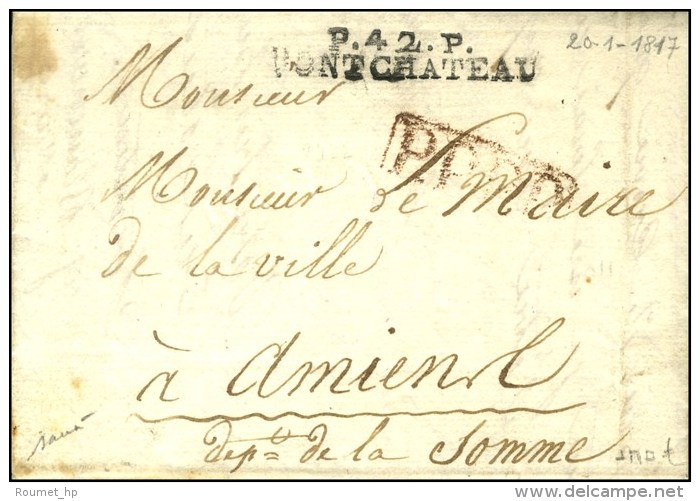 P.42.P.
PONTCHATEAU
20-1-1817
Monsieur
PP
Monsieur Le Maire
de la ville
à Amiens
dept de la Somme
Roumet_hp
© delcampe.net